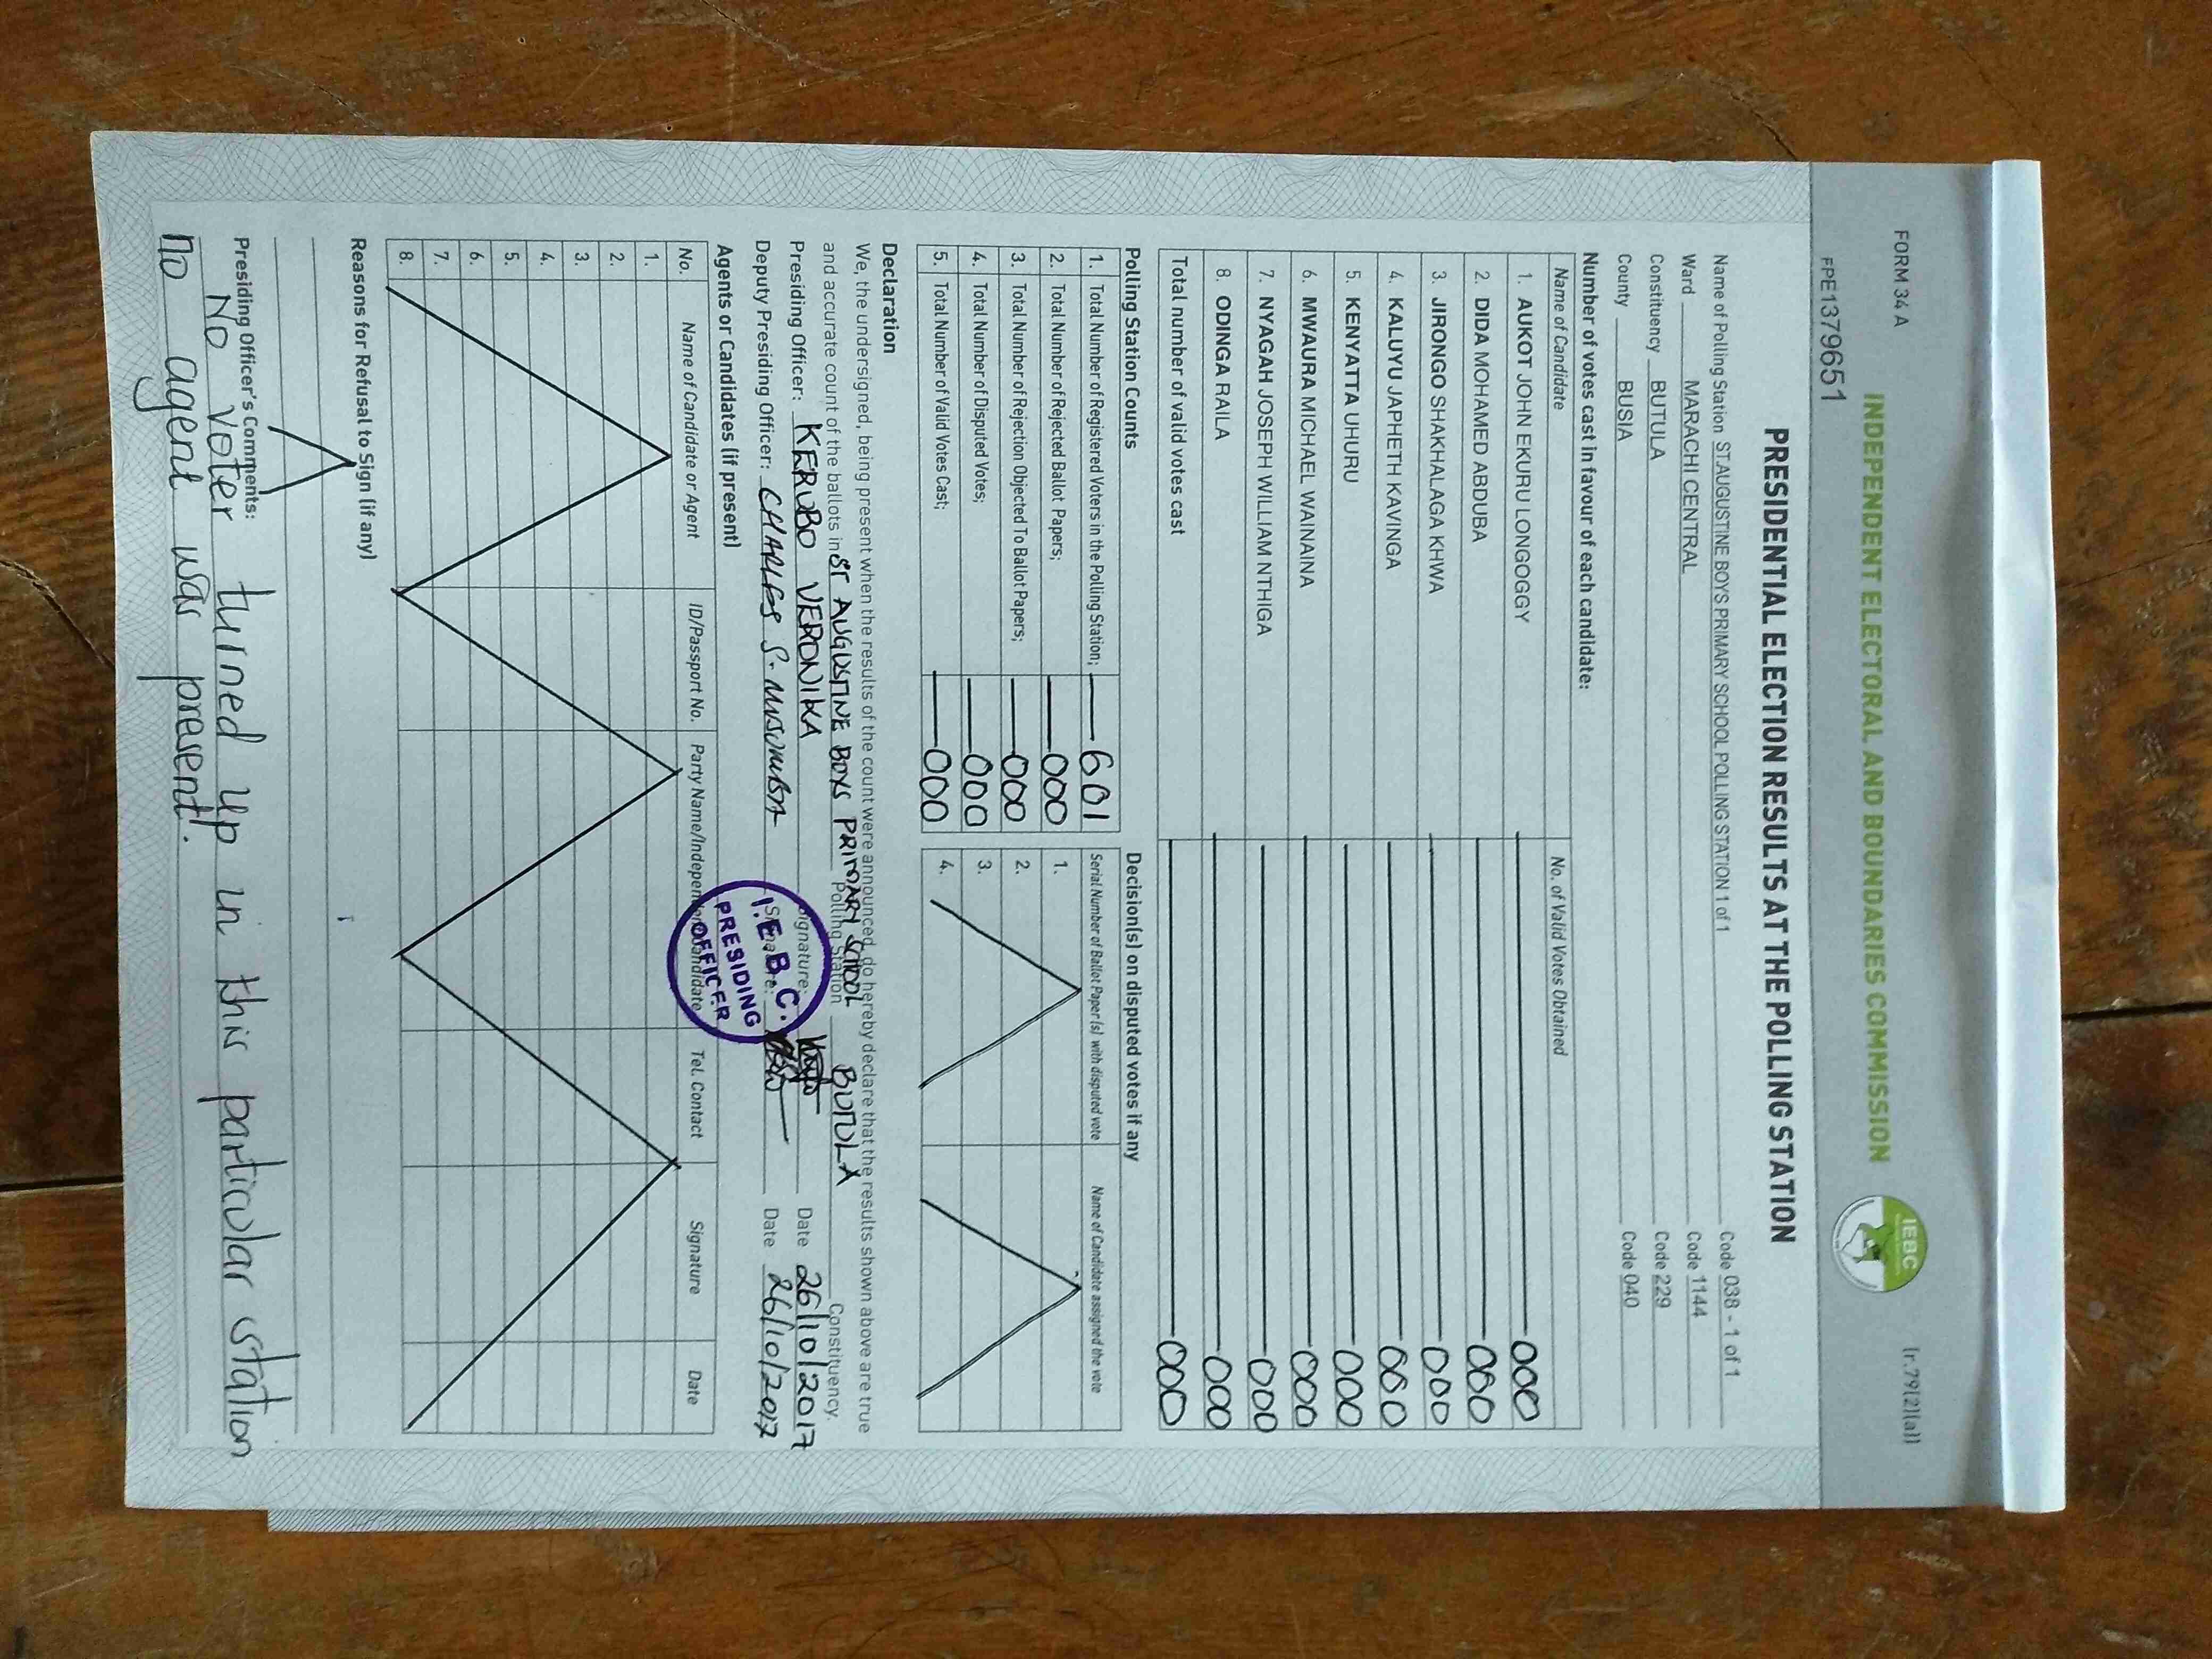 FORM 34 A
(r.79(2)(a))
INDEPENDENT ELECTORAL AND BOUNDARIES COMMISSION
IEBC
FPE1379651
PRESIDENTIAL ELECTION RESULTS AT THE POLLING STATION
Name of Polling Station ST.AUGUSTINE BOYS PRIMARY SCHOOL POLLING STATION 1 of 1 Code 038 - 1 of 1
Ward MARACHI CENTRAL Code 1144
Constituency BUTULA Code 229
County BUSIA Code 040
Number of votes cast in favour of each candidate:
Name of Candidate No. of Valid Votes Obtained
1. AUKOT JOHN EKURU LONGOGGY 000
2. DIDA MOHAMED ABDUBA 000
3. JIRONGO SHAKHALAGA KHWA 000
4. KALUYU JAPHETH KAVINGA 000
5. KENYATTA UHURU 000
6. MWAURA MICHAEL WAINAINA 000
7. NYAGAH JOSEPH WILLIAM NTHIGA 000
8. ODINGA RAILA 000
Total number of valid votes cast 000
Polling Station Counts
1. Total Number of Registered Voters in the Polling Station; 601
2. Total Number of Rejected Ballot Papers; 000
3. Total Number of Rejection Objected To Ballot Papers; 000
4. Total Number of Disputed Votes; 000
5. Total Number of Valid Votes Cast; 000
Decision(s) on disputed votes if any
Serial Number of Ballot Paper (s) with disputed vote Name of Candidate assigned the vote
1.
2.
3.
4.
Declaration
We, the undersigned, being present when the results of the count were announced, do hereby declare that the results shown above are true
and accurate count of the ballots in ST AUGUSTINE BOYS PRIMARY SCHOOL Polling Station BUTULA Constituency.
Presiding Officer: KERUBO VERONIKA Signature: Date 26/10/2017
Deputy Presiding Officer: CHARLES S. Signature: Date 26/10/2017
I.E.B.C.
PRESIDING
OFFICER
Agents or Candidates (if present)
No. Name of Candidate or Agent ID/Passport No. Party Name/Independent Candidate Tel. Contact Signature Date
1.
2.
3.
4.
5.
6.
7.
8.
Reasons for Refusal to Sign (if any)
Presiding Officer's Comments:
No voter turned up in this particular station
no agent was present.